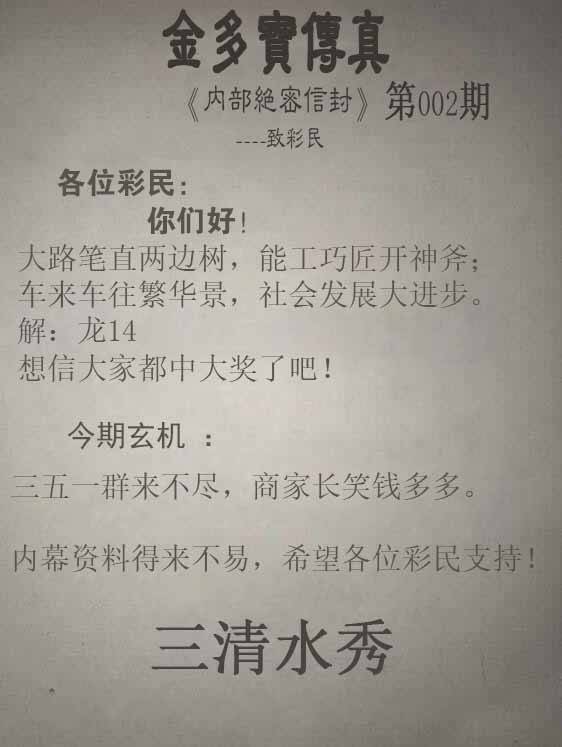 金多寶傳真
《内部絕密信封》第002期
----致彩民
各位彩民:
你们好!
大路笔直两边树，能工巧匠开神斧；
车来车往繁华景，社会发展大进步。
解：龙14
想信大家都中大奖了吧！
今期玄机 ：
三五一群来不尽，商家长笑钱多多。
内幕资料得来不易，希望各位彩民支持！
三清水秀